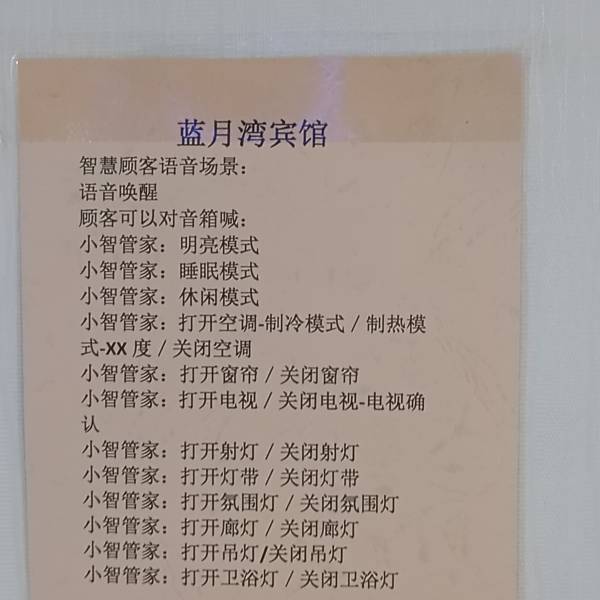 蓝月湾宾馆
智慧顾客语音场景：
语音唤醒
顾客可以对音箱喊：
小智管家：明亮模式
小智管家：睡眠模式
小智管家：休闲模式
小智管家：打开空调-制冷模式 / 制热模
式-XX 度 / 关闭空调
小智管家：打开窗帘 / 关闭窗帘
小智管家：打开电视 / 关闭电视-电视确
认
小智管家：打开射灯 / 关闭射灯
小智管家：打开灯带 / 关闭灯带
小智管家：打开氛围灯 / 关闭氛围灯
小智管家：打开廊灯 / 关闭廊灯
小智管家：打开吊灯/关闭吊灯
小智管家：打开卫浴灯 / 关闭卫浴灯